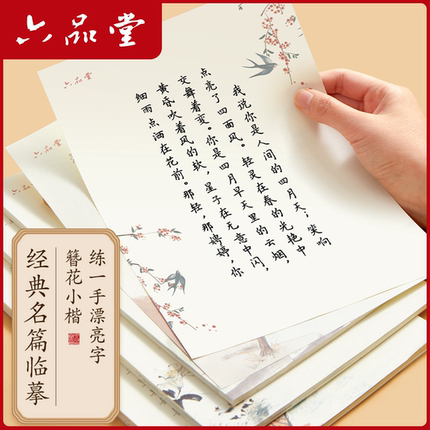 六品堂
六品堂
我说你是人间的四月天；笑响
点亮了四面风。轻灵在春的光艳中
交舞着变。你是四月早天里的云烟，
黄昏吹着风的软，星子在无意中闪，
细雨点洒在花前。那轻，那娉婷，你
六品堂
练一手漂亮字
簪花小楷
经典名篇临摹